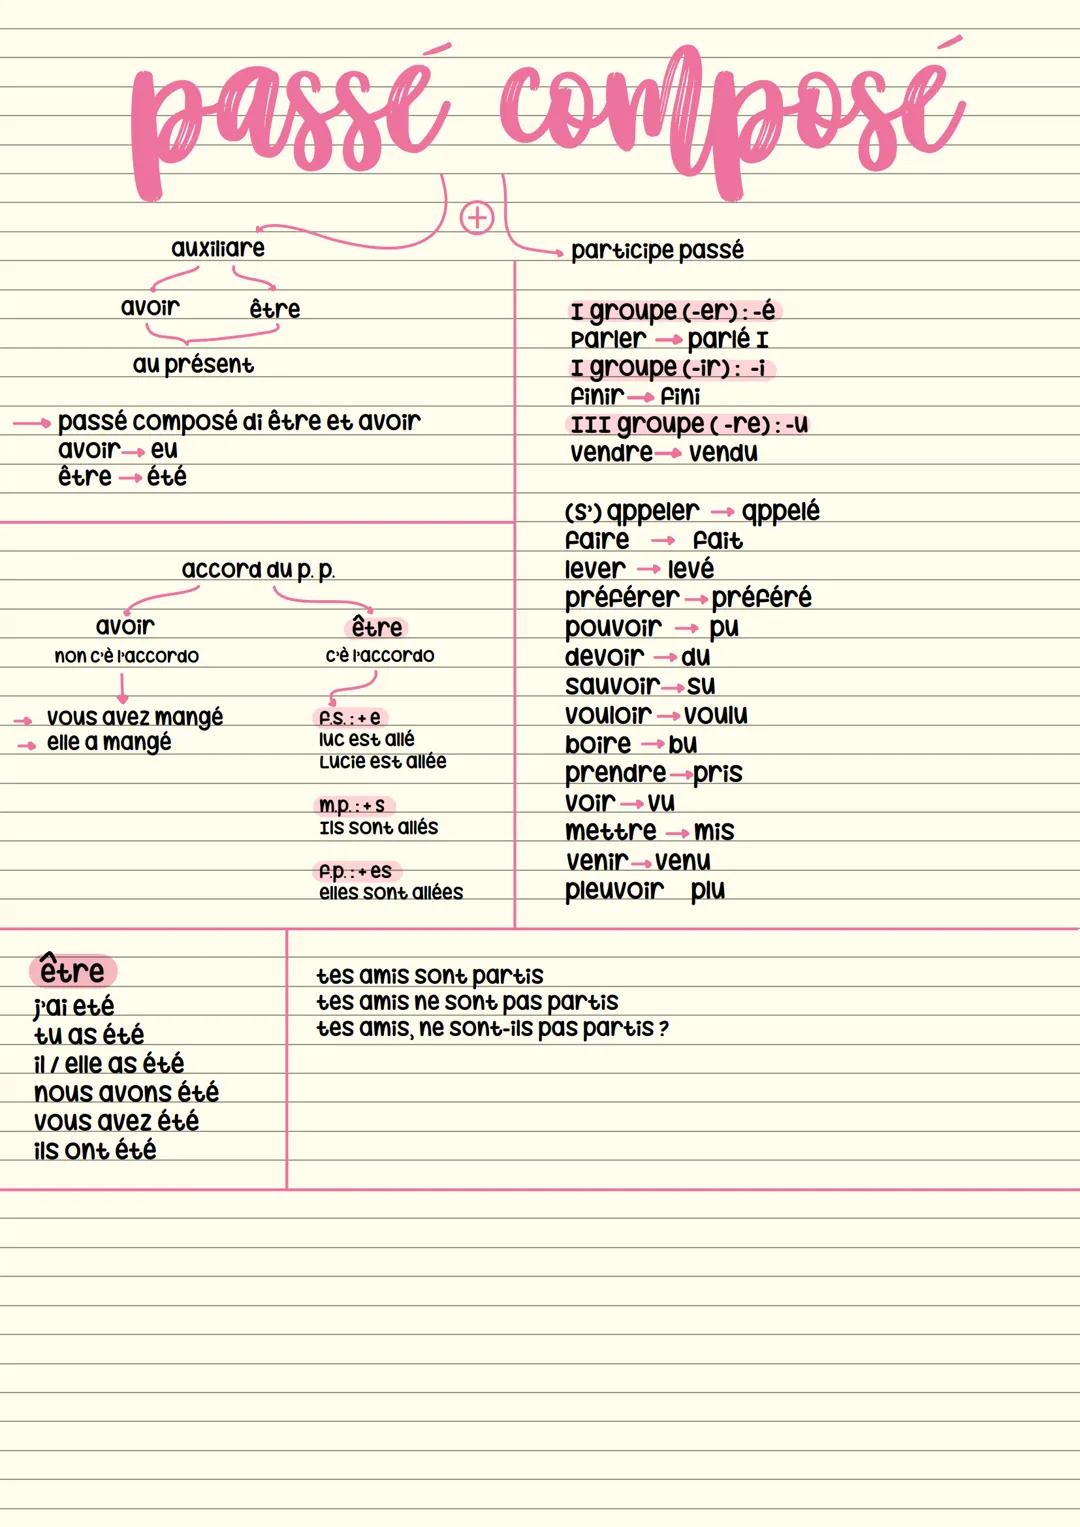 passé composé
+
auxiliare
avoir être
au présent
→ passé composé di être et avoir
avoir → eu
être → été
participe passé
I groupe (-er) : -é
Parler → parlé I
I groupe (-ir) : -i
finir → fini
III groupe ( -re) : -u
vendre → vendu
(s') qppeler → qppelé
faire → fait
lever → levé
préférer → préféré
pouvoir → pu
devoir → du
sauvoir → su
vouloir → voulu
boire → bu
prendre → pris
voir → vu
mettre → mis
venir → venu
pleuvoir plu
accord du p. p.
avoir
non c'è l'accordo
→ vous avez mangé
→ elle a mangé
être
c'è l'accordo
f.s. : + e
luc est allé
Lucie est allée
m.p. : + s
Ils sont allés
f.p. : + es
elles sont allées
être
j'ai eté
tu as été
il / elle as été
nous avons été
vous avez été
ils ont été
tes amis sont partis
tes amis ne sont pas partis
tes amis, ne sont-ils pas partis ?